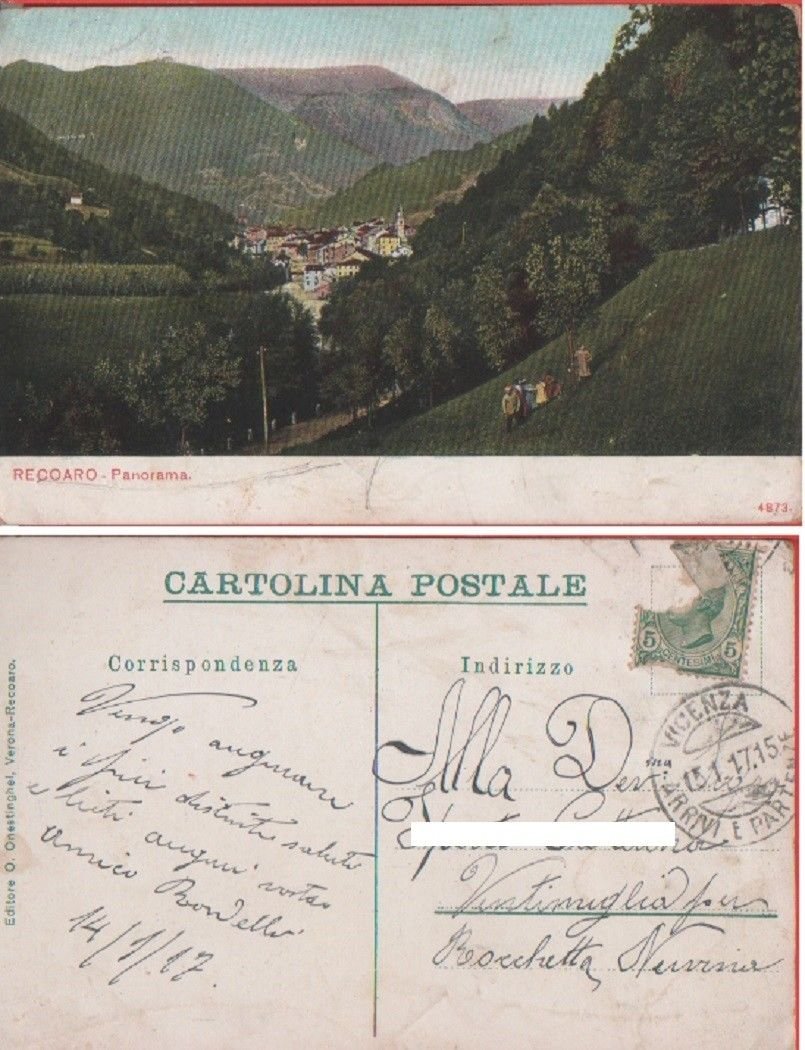 RECOARO - Panorama.
4873.
CARTOLINA POSTALE
Corrispondenza
Vengo augurare
i più distinti saluti
e lieti auguri vostro
amico
14/1/17.
Editore O. Onestinghel, Verona-Recoaro.
Indirizzo
Alla
Ventimiglia per
Rocchetta Nervina
5 5
CENTESIMI
VICENZA
15.1.17.15
ARRIVI E PARTENZE